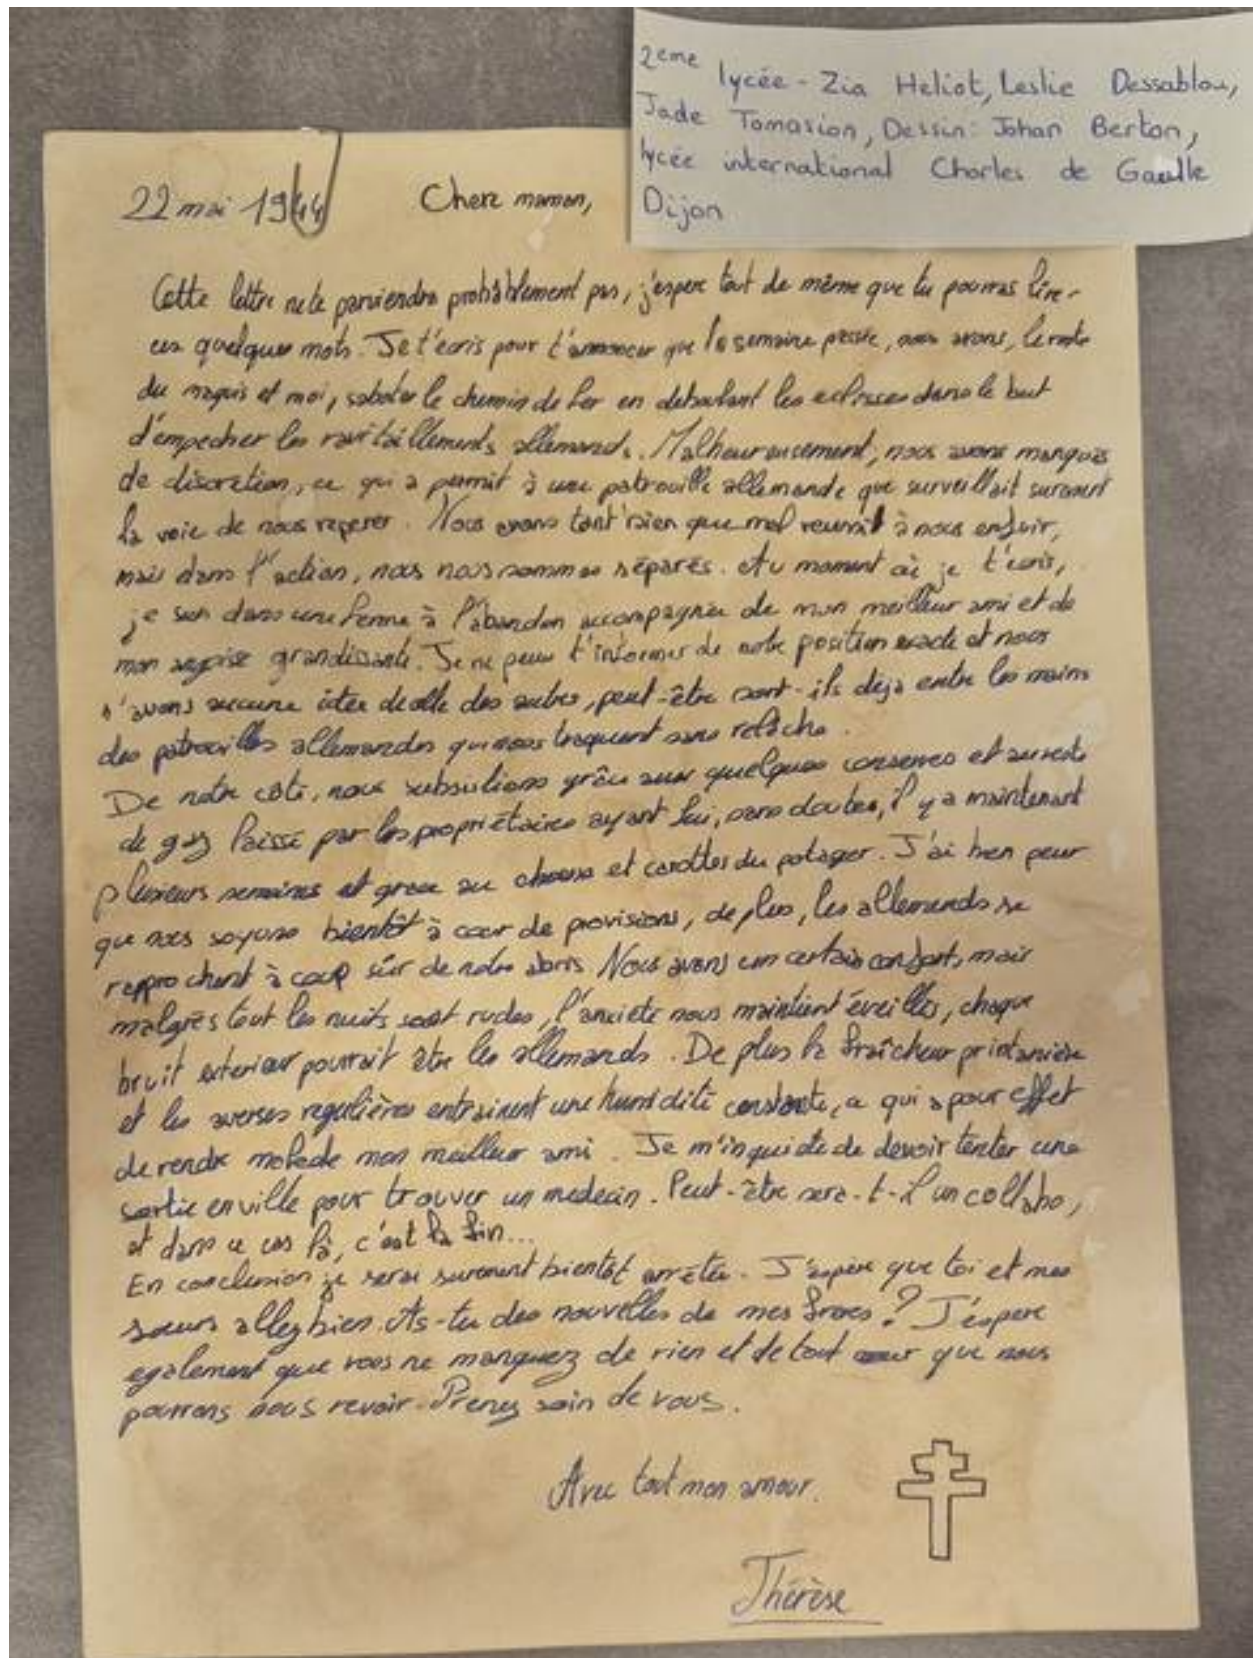 2eme lycée - Zia Heliot, Leslie Dessablou,
Jade Tomasion, Dessin: Johan Berton,
lycée international Charles de Gaulle
Dijon
22 mai 1944
Chere maman,
Cette lettre ne te parviendra probablement pas, j'espere tout de même que tu pourras lire
ces quelques mots. Je t'ecris pour t'annoncer que la semaine passée, nous avons, le reste
du maquis et moi, saboter le chemin de fer en deboulant les eclisses dans le but
d'empecher les ravitaillements allemands. Malheureusement, nous avons manqués
de discretion, ce qui a permit à une patrouille allemande que surveillait surement
la voie de nous reperer. Nous avons tant bien que mal reussit à nous enfuir,
mais dans l'action, nous nous sommes séparés. Au moment où je t'ecris,
je suis dans une ferme à l'abandon accompagnée de mon meilleur ami et de
mon angoise grandissante. Je ne peux t'informer de notre position exacte et nous
n'avons aucune idée de celle des autres, peut-être sont-ils deja entre les mains
des patrouilles allemandes qui nous traquent sans relâche.
De notre côté, nous subsistions grâce aux quelques conserves et au reste
de gaz laissé par les propriétaires ayant fui, sans doutes, il y a maintenant
plusieurs semaines et grace au choux et carottes du potager. J'ai bien peur
que nous soyons bientôt à cour de provisions, de plus, les allemands se
rapprochent à coup sûr de notre abris. Nous avons un certain confort, mais
malgrès tout les nuits sont rudes, l'anxiete nous maintient éveillés, chaque
bruit exterieur pourrait être les allemands. De plus la fraîcheur printanière
et les averses regulières entrainent une humidité constante, ce qui a pour effet
de rendre malade mon meilleur ami. Je m'inquiete de devoir tenter une
sortie en ville pour trouver un medecin. Peut-être sera-t-il un collabo,
et dans ce cas là, c'est la fin...
En conclusion je serai surement bientôt arrêtée. J'espère que toi et mes
sœurs allez bien. As-tu des nouvelles de mes freres? J'éspere
egalement que vous ne manquez de rien et de tout cœur que nous
pourrons nous revoir. Prenez soin de vous.
Avec tout mon amour.
Thérèse